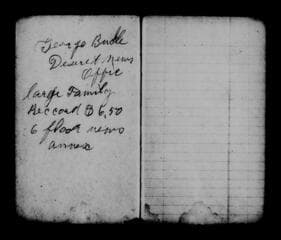 George Budle
Deseret News
Offic
large Family
Reccord $6,50
6 floor news
annex